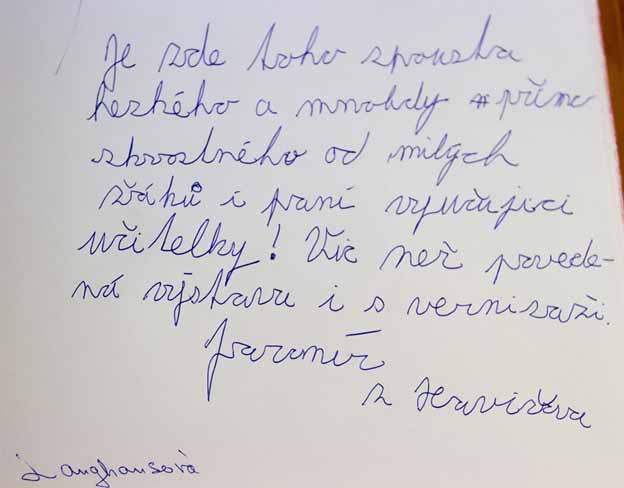 Je zde toho spousta
hezkého a mnohdy přímo
skvostného od milých
žáků i paní vyučující
učitelky! Víc než povede-
ná výstava i s vernisáží.
Jaromír
z Havířova
Langhansová